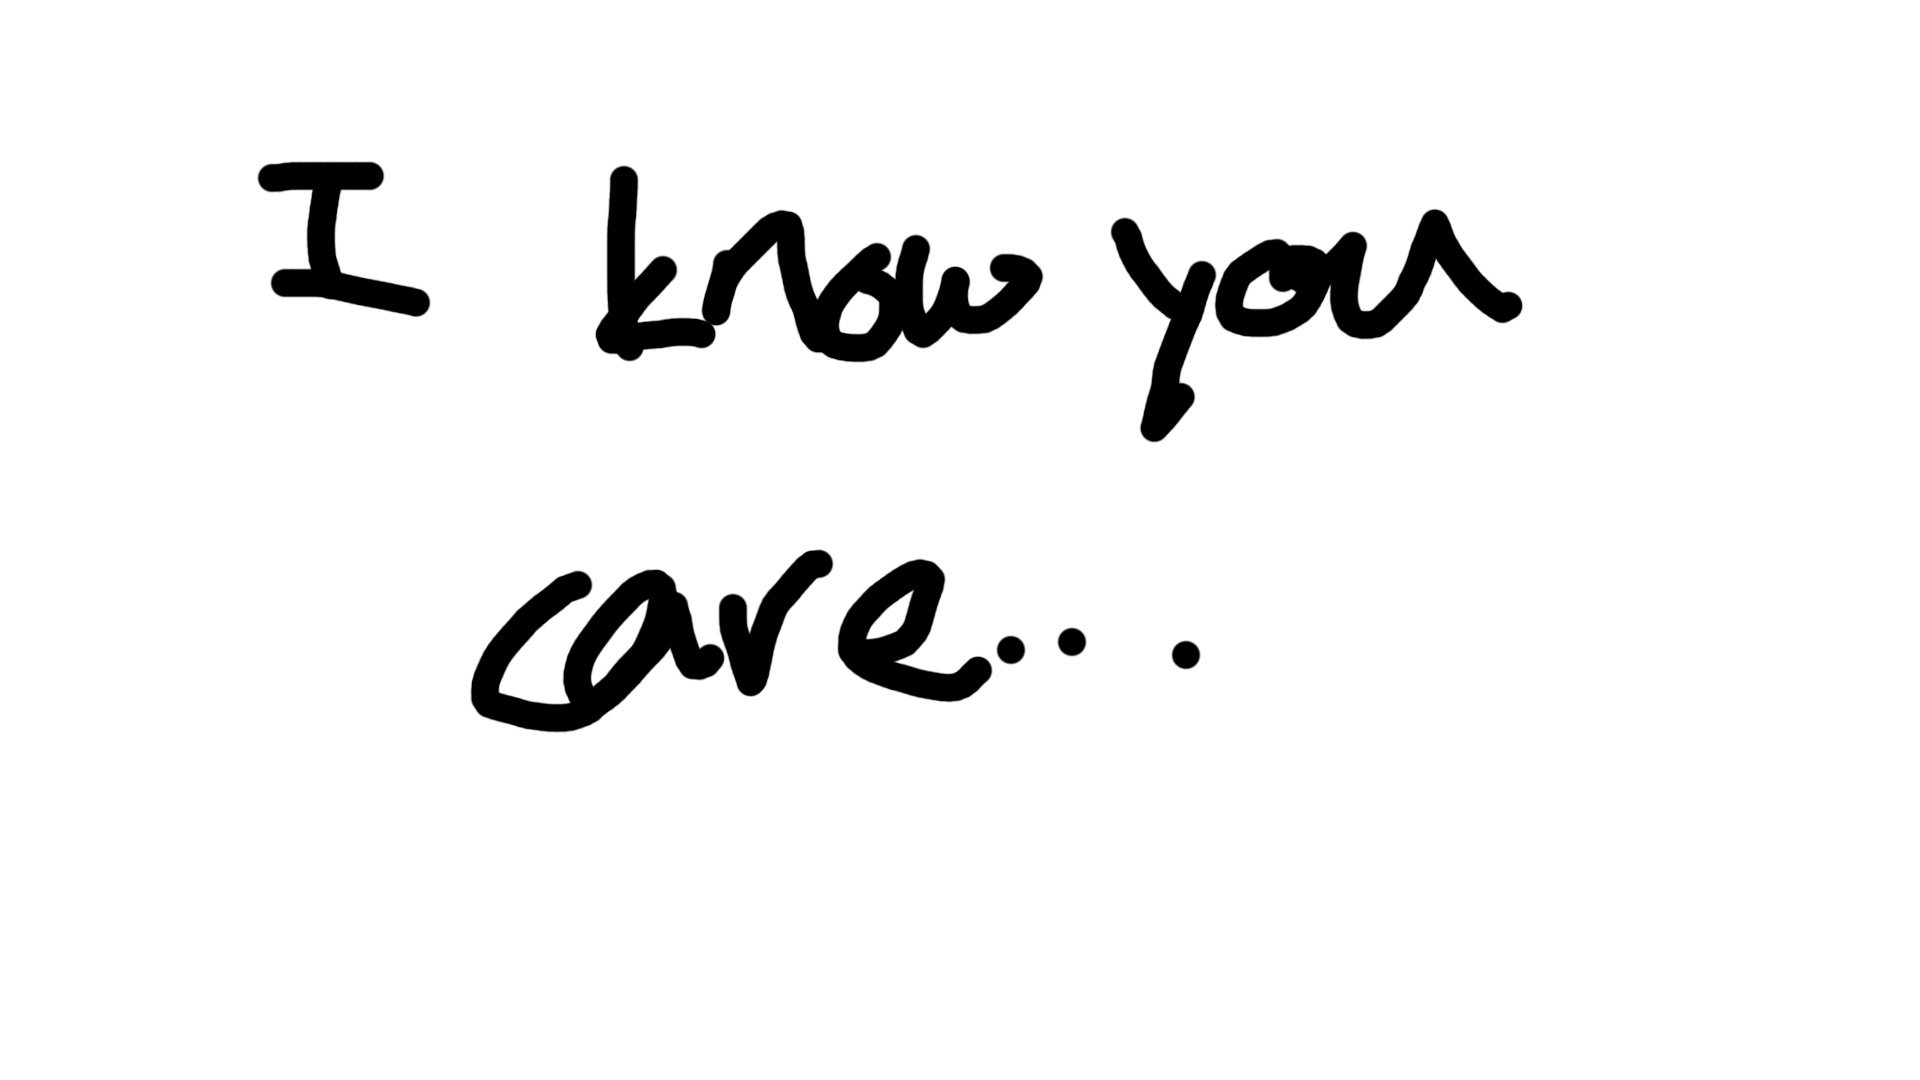 I know you
care...